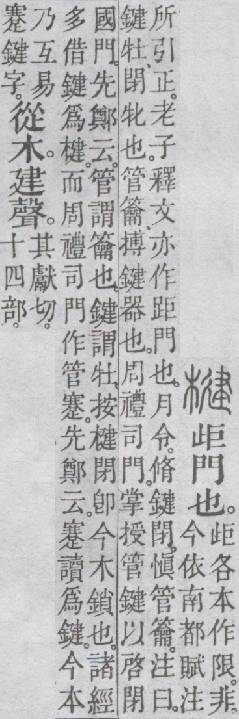 楗 歫門也。
歫各本作限。非。
今依南都賦注
所引正。老子釋文亦作距門也。月令。脩鍵閉。愼管籥。注曰。
鍵牡。閉牝也。管籥、搏鍵器也。周禮司門。掌授管鍵以啓閉
國門。先鄭云。管謂籥也。鍵謂牡。按楗閉卽今木鎖也。諸經
多借鍵爲楗。而周禮司門作管蹇。先鄭云。蹇讀爲鍵。今本
乃互易
蹇鍵字。
從木。建聲。
其獻切。
十四部。